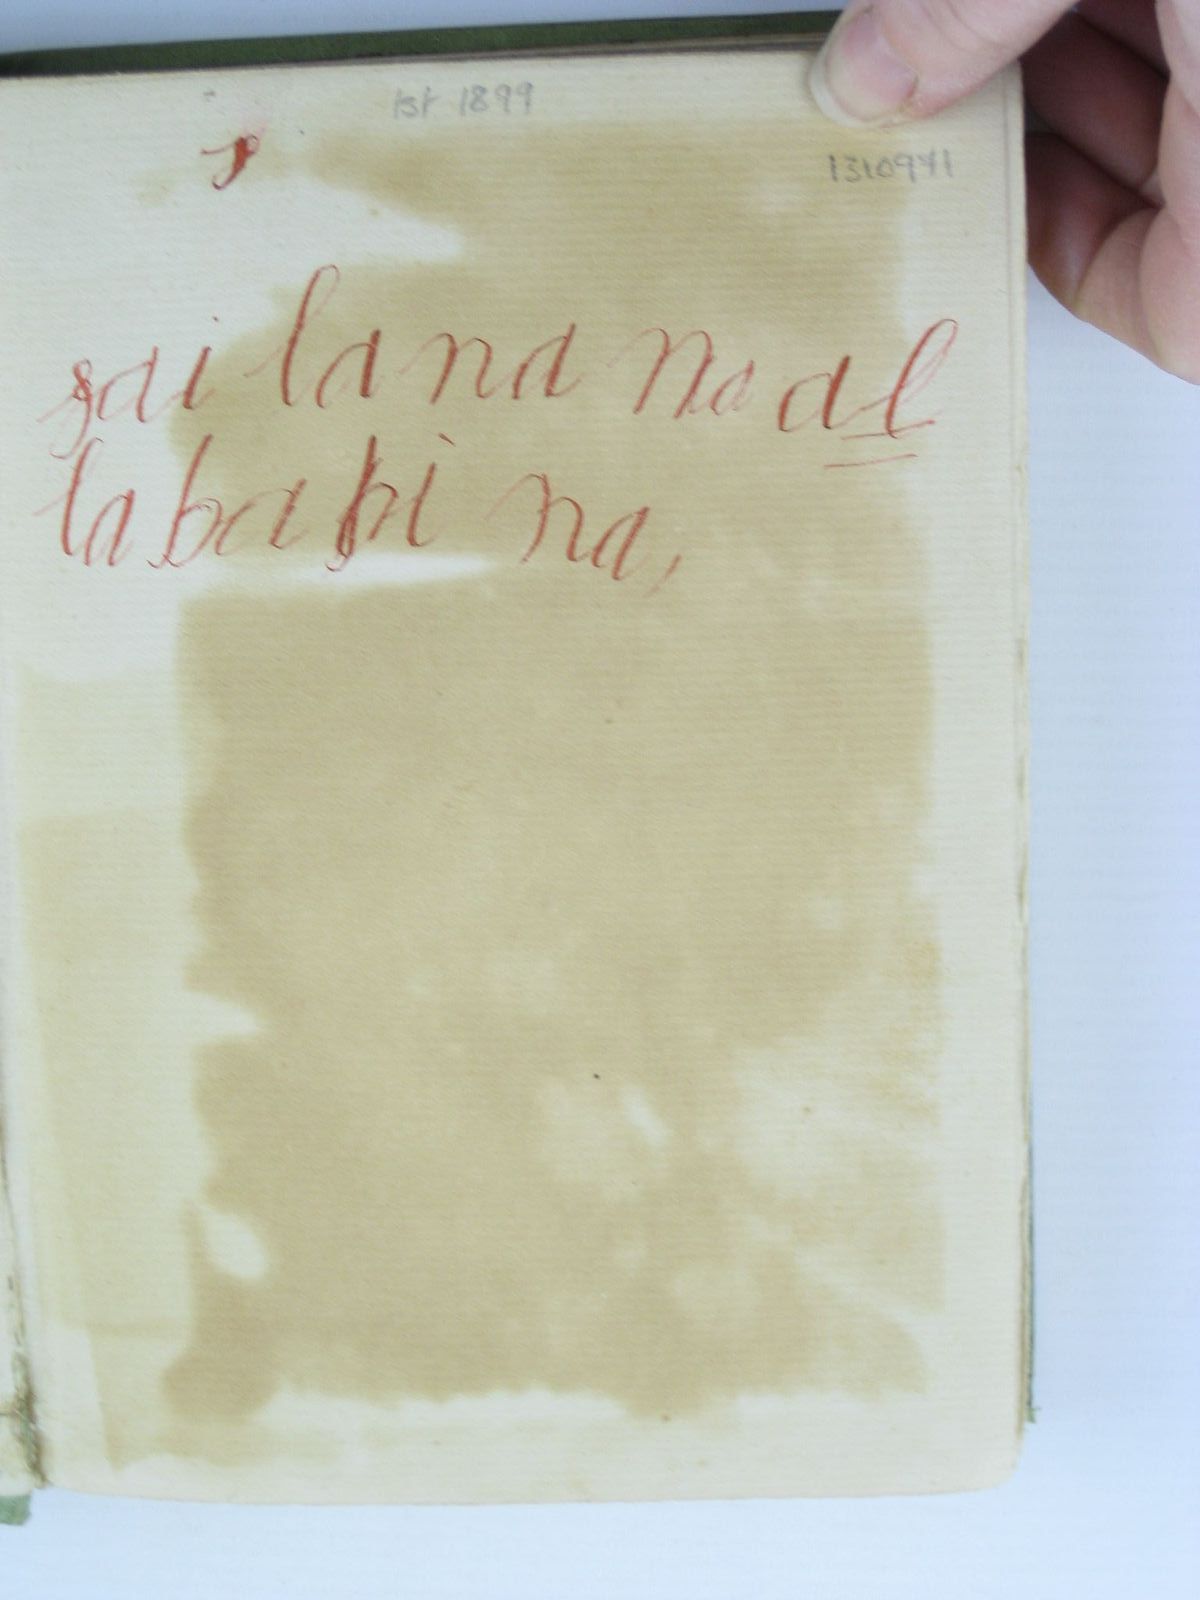 1st 1899
1310941
sai lana na al
la ba pi na,